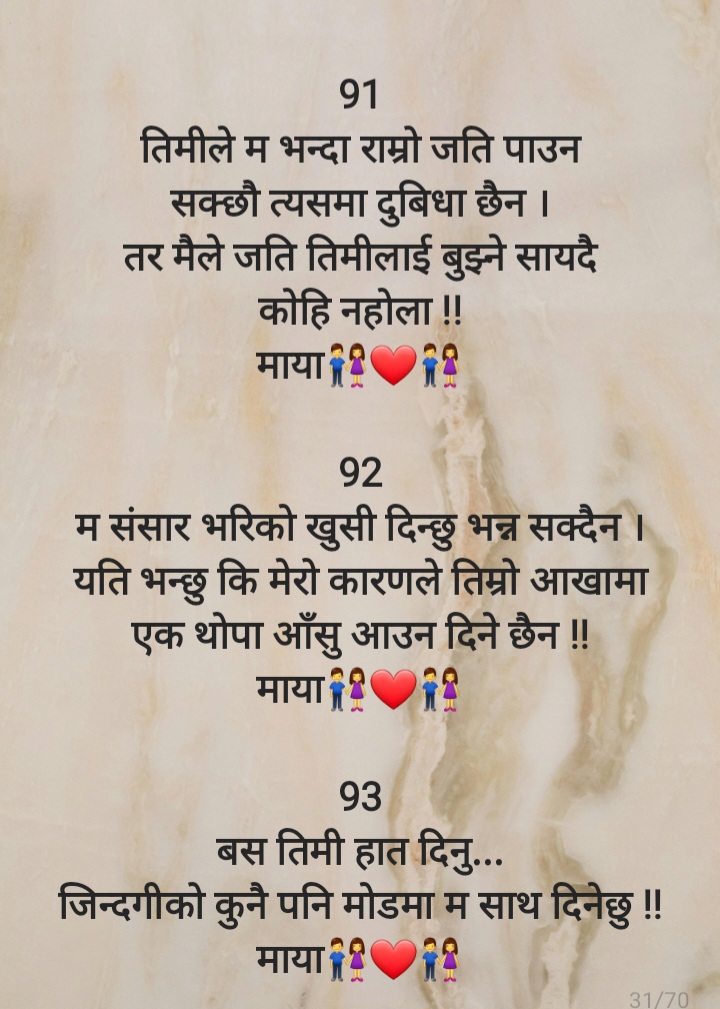 91
तिमीले म भन्दा राम्रो जति पाउन
सक्छौ त्यसमा दुबिधा छैन ।
तर मैले जति तिमीलाई बुझ्ने सायदै
कोहि नहोला !!
माया👫❤️👫
92
म संसार भरिको खुसी दिन्छु भन्न सक्दैन ।
यति भन्छु कि मेरो कारणले तिम्रो आखामा
एक थोपा आँसु आउन दिने छैन !!
माया👫❤️👫
93
बस तिमी हात दिनु...
जिन्दगीको कुनै पनि मोडमा म साथ दिनेछु !!
माया👫❤️👫
31/70